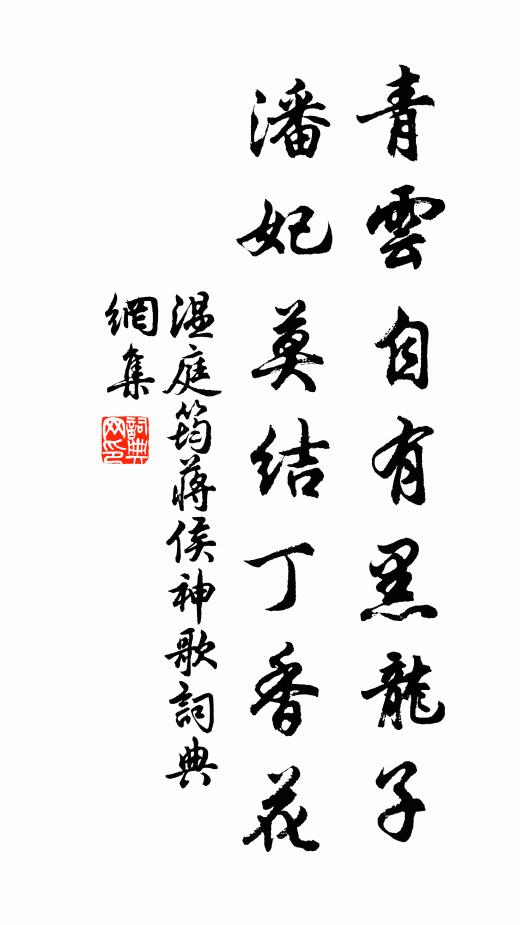 青雲自有黑龍子
潘妃莫結丁香花
溫庭筠蔣侯神歌詞典
網集
詞典
网印